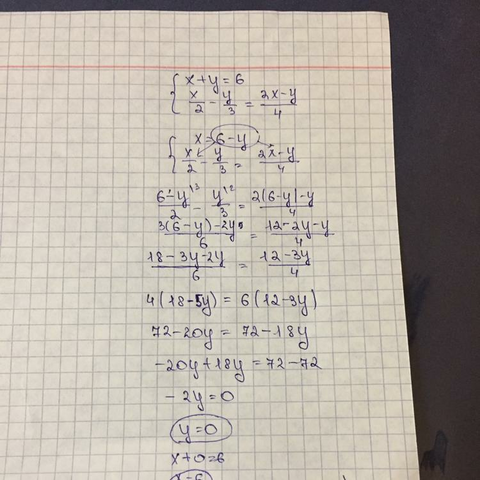 x+y=6
x/2 - y/3 = 2x-y/4
x=6-y
x/2 - y/3 = 2x-y/4
6-y/2 - y/3 = 2(6-y)-y/4
3(6-y)-2y/6 = 12-2y-y/4
18-3y-2y/6 = 12-3y/4
4(18-5y) = 6(12-3y)
72-20y = 72-18y
-20y+18y = 72-72
-2y=0
y=0
x+0=6
x=6